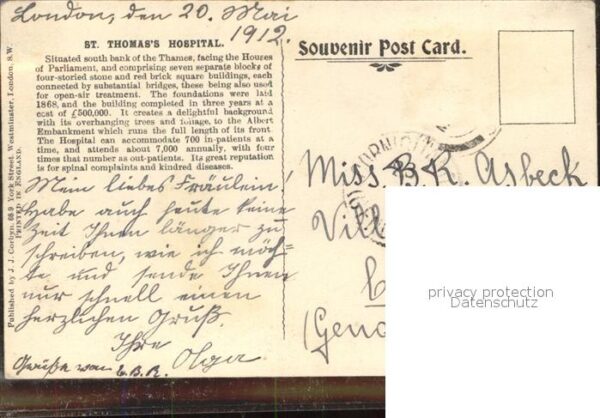 London, den 20. Mai
1912.
ST. THOMAS'S HOSPITAL.
Situated south bank of the Thames, facing the Houses
of Parliament, and comprising seven separate blocks of
four-storied stone and red brick square buildings, each
connected by substantial bridges, these being also used
for open-air treatment. The foundations were laid
1868, and the building completed in three years at a
cost of £500,000. It creates a delightful background
with its overhanging trees and foliage, to the Albert
Embankment which runs the full length of its front.
The Hospital can accommodate 700 in-patients at a
time, and attends about 7,000 annually, with four
times that number as out-patients. Its great reputation
is for spinal complaints and kindred diseases.
Mein liebes Fräulein!
Habe auch heute keine
Zeit Ihnen länger zu
schreiben, wie ich möch-
te und sende Ihnen
nur schnell einen
herzlichen Gruß.
Ihre
Olga
Grüße von E.B.R.
Published by J. J. Corbyn, York Street, Westminster, London, S.W.
PRINTED IN ENGLAND.
Souvenir Post Card.
Miss B. R. Asbeck
Vill
(Geno
privacy protection
Datenschutz